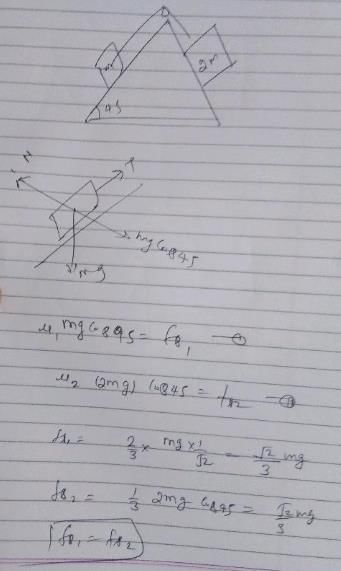 m
2m
45
N
T
mg cos45
mg
μ₁ mg cos45 = fs₁ —①
μ₂ (2mg) cos45 = fs₂ —②
fs₁ = 2/3 × mg×1/√2 = √2/3 mg
fs₂ = 1/3 2mg cos45 = √2mg/3
fs₁ = fs₂